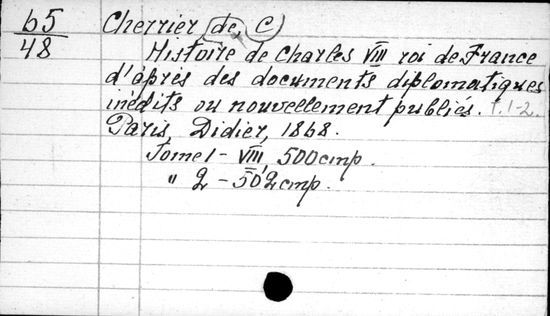 65
48
Cherrier de, C
Histoire de Charles VIII roi de France
d'après des documents diplomatiques
inédits ou nouvellement publiés. T. 1-2.
Paris, Didier, 1868.
Tome 1 - VIII, 500 cmp.
" 2 - 502 cmp.